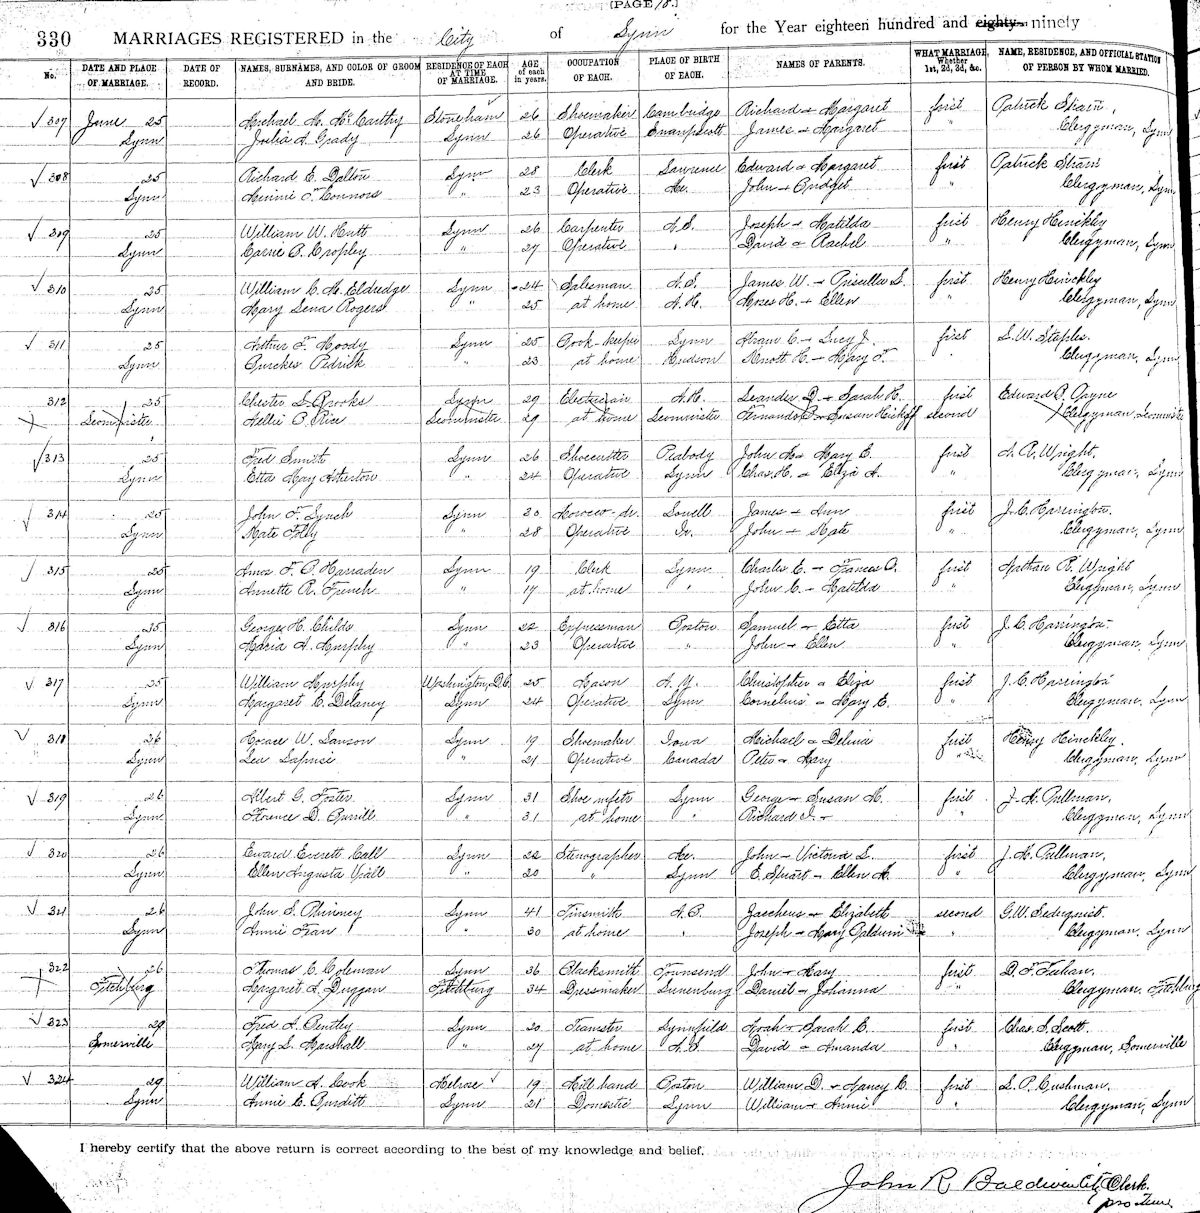 [PAGE 18.]
330 MARRIAGES REGISTERED in the City of Lynn for the Year eighteen hundred and eighty- ninety
No. DATE AND PLACE OF MARRIAGE. DATE OF RECORD. NAMES, SURNAMES, AND COLOR OF GROOM AND BRIDE. RESIDENCE OF EACH AT TIME OF MARRIAGE. AGE of each in years. OCCUPATION OF EACH. PLACE OF BIRTH OF EACH. NAMES OF PARENTS. WHAT MARRIAGE, Whether 1st, 2d, 3d, &c. NAME, RESIDENCE, AND OFFICIAL STATION OF PERSON BY WHOM MARRIED.
307 June 25 Michael H. McCarthy Stoneham 26 Shoemaker Cambridge Richard + Margaret first Patrick Strain,
Lynn Julia A. Grady Lynn 26 Operative Swampscott James + Margaret " Clergyman, Lynn
308 25 Richard E. Dalton Lynn 28 Clerk Lawrence Edward + Margaret first Patrick Strain
Lynn Minnie F. Connors " 23 Operative Me. John + Bridget " Clergyman, Lynn
309 25 William W. Hutt Lynn 26 Carpenter N.S. Joseph + Matilda first Henry Hinckley
Lynn Carrie B. Cropley " 27 Operative " David + Rachel " Clergyman, Lynn
310 25 William C. M. Eldredge Lynn 24 Salesman N.S. James W. + Priscilla S. first Henry Hinckley
Lynn Mary Lena Rogers " 25 at home N.H. Moses H. + Ellen " Clergyman, Lynn
311 25 Arthur F. Moody Lynn 25 Book-keeper Lynn Hiram C. + Lucy J. first S. W. Staples.
Lynn Pedrick " 23 at home Hudson Knott H. + Mary F. " Clergyman, Lynn
312 25 Chester L. Brooks Lynn 29 Electrician N.H. Leander D. + Sarah H. first Edward P. Payne
Leominster Nellie B. Rice Leominster 29 at home Leominster + Susan second Clergyman, Leominster
313 25 Fred Smith Lynn 26 Shoecutter Peabody John H. + Mary E. first A. R. Wright,
Lynn Etta May Atherton " 24 Operative Lynn Chas. H. + Eliza A. " Clergyman, Lynn
314 25 John F. Lynch Lynn 20 Morocco-dr. Lowell James + Ann first J. C. Harrington.
Lynn Kate Foley " 28 Operative Ir. John + Kate " Clergyman, Lynn
315 25 Amos F. P. Harraden Lynn 19 Clerk Lynn Charles C. + Frances O. first R. Wright
Lynn Annette R. French " 17 at home " John C. + Matilda " Clergyman, Lynn
316 25 George H. Childs Lynn 22 Expressman Boston Samuel + Etta first J. C. Harrington
Lynn Maria A. Murphy " 23 Operative " John + Ellen " Clergyman, Lynn
317 25 William Murphy Washington, D.C. 25 Mason N.Y. Christopher + Eliza first J. C. Harrington
Lynn Margaret E. Delaney Lynn 24 Operative Lynn Cornelius + Mary E. " Clergyman, Lynn
318 26 Horace W. Sanson Lynn 19 Shoemaker Iowa Michael + Delina first Henry Hinckley.
Lynn Lea Laprise " 21 Operative Canada Peter + Mary " Clergyman, Lynn
319 26 Albert G. Foster Lynn 31 Shoe mfctr Lynn George + Susan M. first J. M. Pullman,
Lynn Florence D. Burrill " 31 at home " Richard I. + " Clergyman, Lynn
320 26 Edward Everett Call Lynn 22 Stenographer Me. John + Victoria S. first J. M. Pullman,
Lynn Ellen Augusta Viall " 20 " Lynn E. Stuart + Ellen A. " Clergyman, Lynn
321 26 John S. Phinney Lynn 41 Tinsmith N.B. Zaccheus + Elizabeth second G. W. Sederquist.
Lynn Annie Fran " 30 at home " Joseph + Mary Baldwin " Clergyman, Lynn
322 26 Thomas C. Coleman Lynn 36 Blacksmith Townsend John + Mary first D. F. Feehan,
Fitchburg Margaret A. Duggan Fitchburg 34 Dressmaker Lunenburg Daniel + Johanna " Clergyman, Fitchburg
323 29 Fred A. Bentley Lynn 20 Teamster Lynnfield Noah + Sarah E. first Chas. S. Scott.
Somerville Mary L. Marshall " 27 at home N.S. David + Amanda " Clergyman, Somerville
324 29 William A. Cook Melrose 19 Mill hand Boston William D. + Nancy E. first L. P. Cushman,
Lynn Annie E. Burditt Lynn 21 Domestic Lynn William + Annie " Clergyman, Lynn
I hereby certify that the above return is correct according to the best of my knowledge and belief.
John R. Baldwin City Clerk.
pro tem